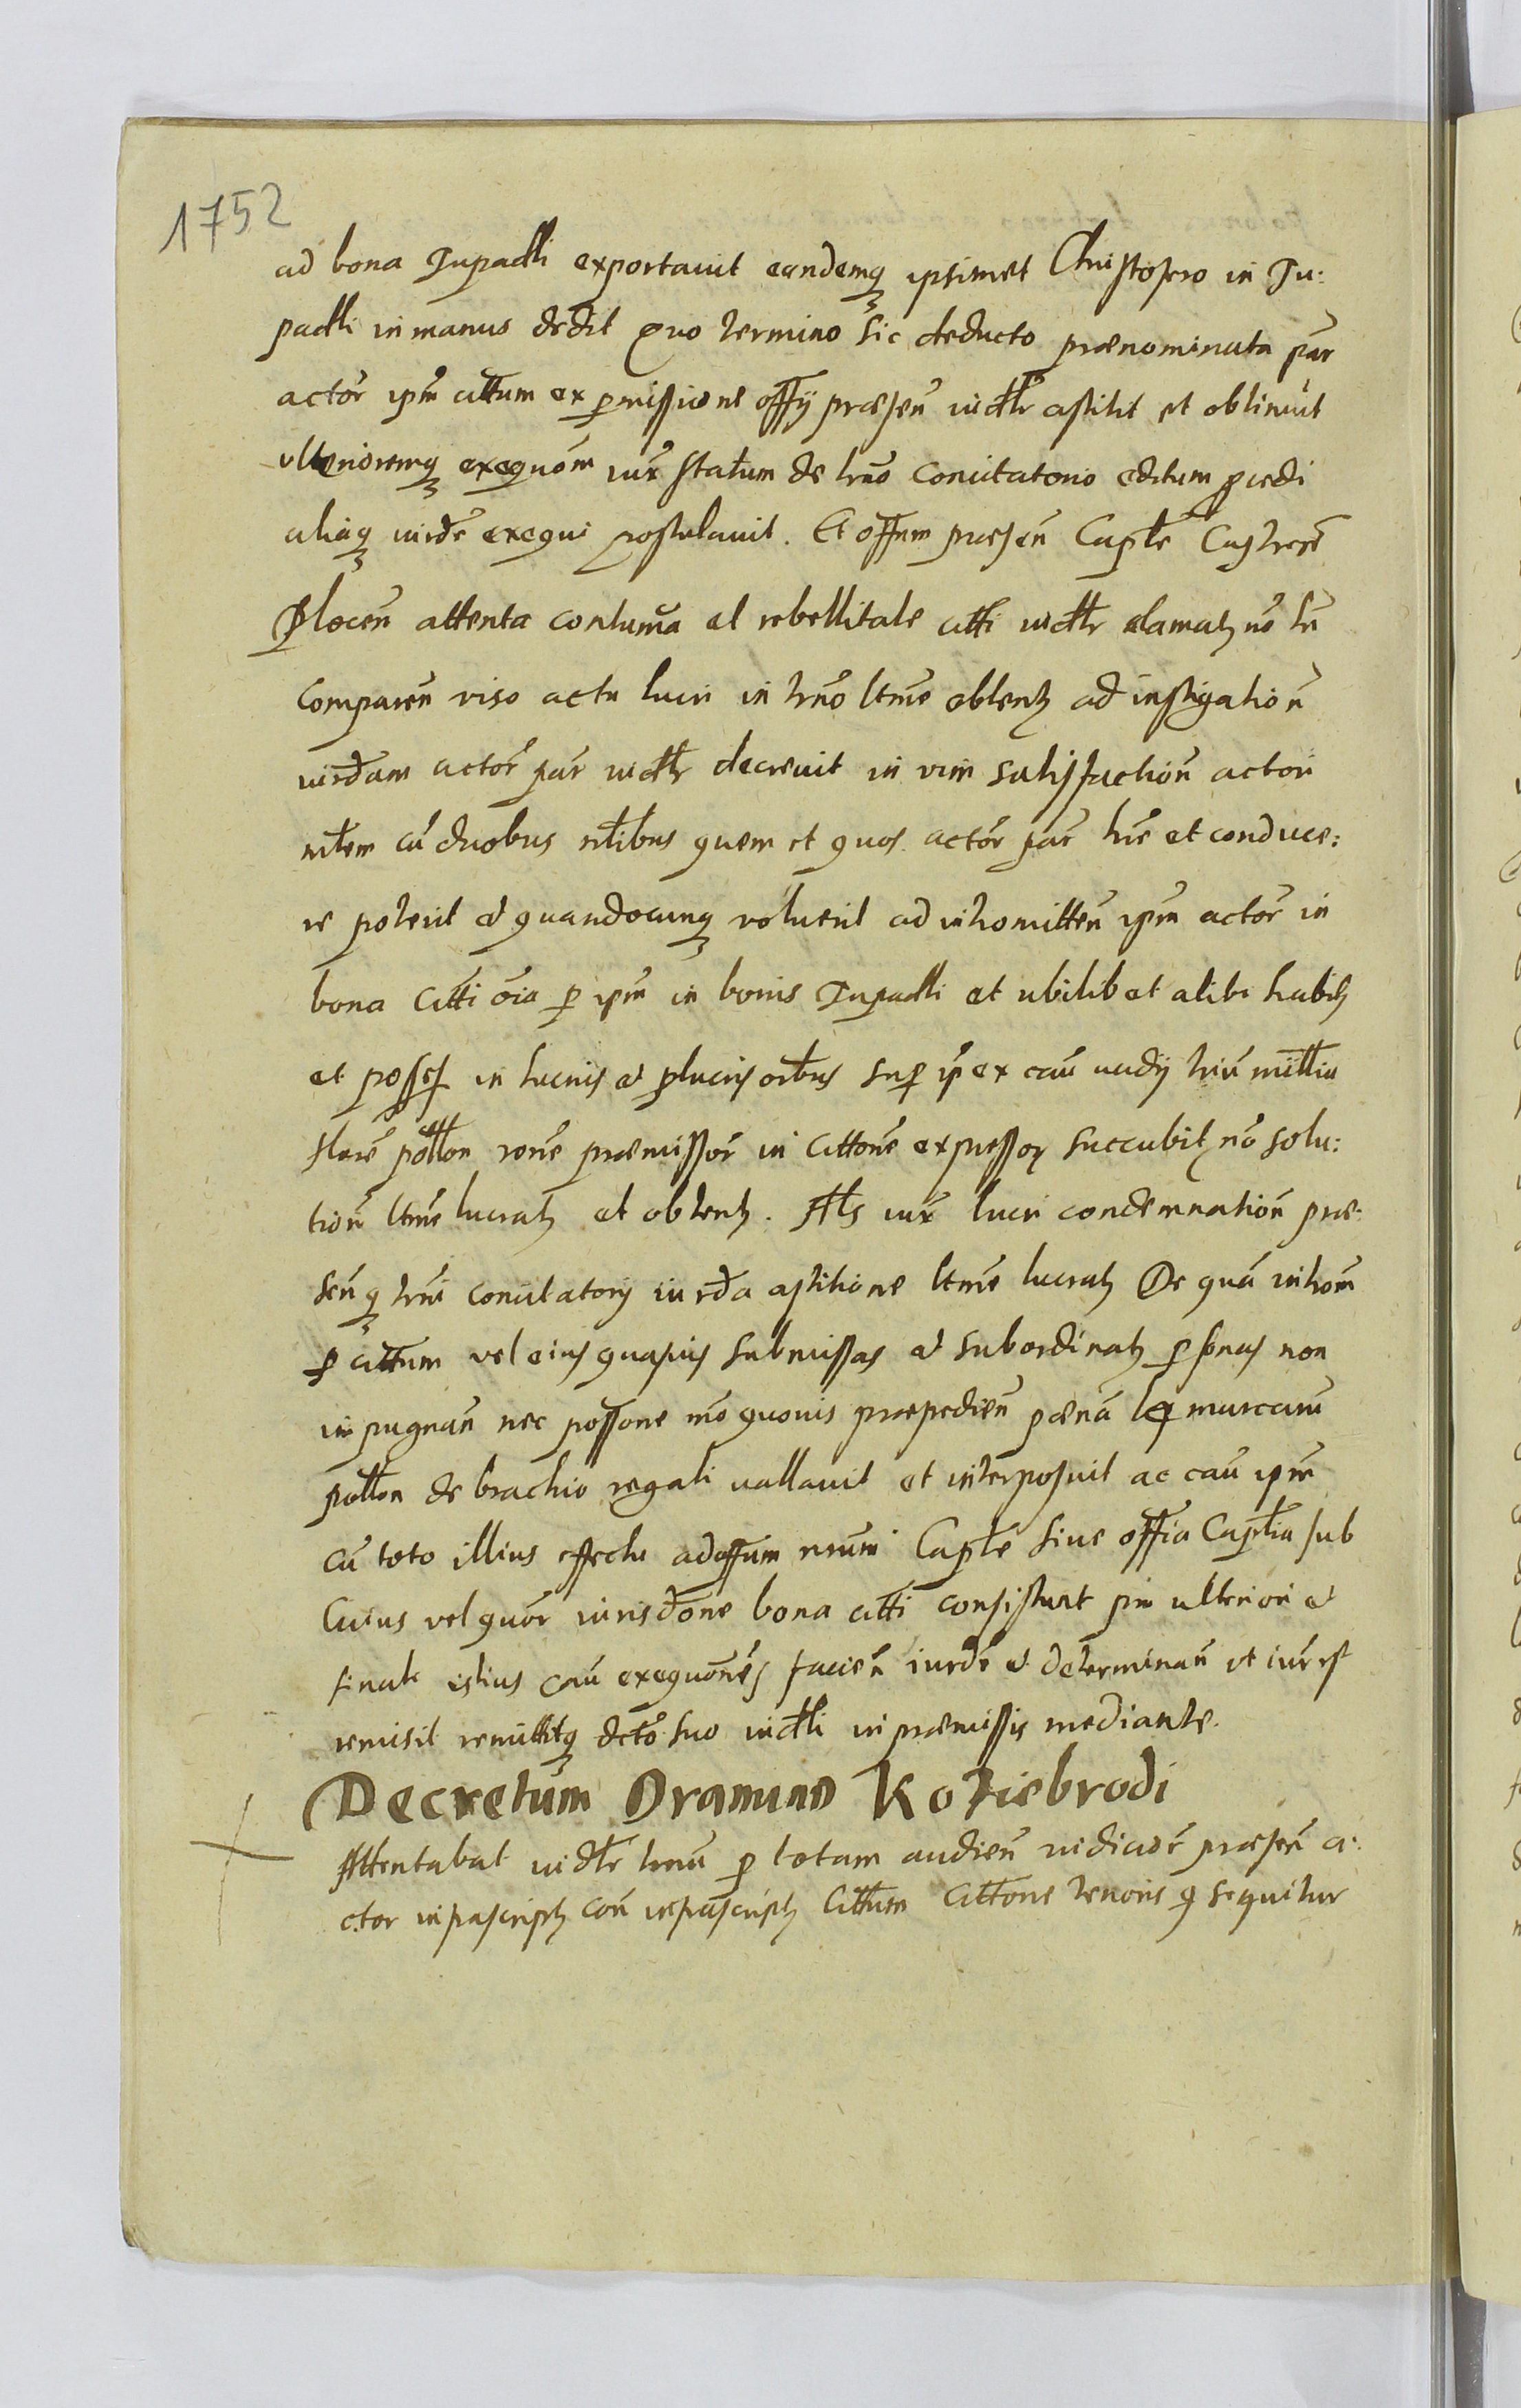 1752
ad bona Tupadli exportavit eandemq ipsimet Christofero in Tu:
padli in manus dedit Quo termino sic deducto prænominata par
actor ipm cittum ex pmissione offy præsen iudlr astitit et obtinuit
ulterioremq exequom iux statum de trno concitatorio editum procedi
aliaq iurde exequi postulavit. Et offum præsen Caple Castren
Plocen attenta contuma et rebellitate citti iudlr clamat no tn
Comparen viso actu lucri in trno ltme obtent ad instigation
iurdam actor par iudlr decrevit in vim satisfaction actori
mtem cu duobus ntibus quem et quos actor par hre et conduce:
re poterit et quandocunq voluerit ad intromitten ipm actor in
bona citti oia p ipm in bonis Tupadli et ubilibet alibi habit
et posses in lucris et plucris orbus sup ip ex cau vadij triu millia
flore pollon rone præmissor in cittone expressor succubit no solu:
tion ltme lucrat et obtent. Als iux lucri condemnation præ:
senq trni concitatory iurda astitione ltme lucrat De qua introm
p cittum vel eius quasvis submissas et subordinat psonas non
impugnan nec possone mo quovis præpedien pæna marcaru
pollon de brachio regali vallavit et interposuit ac cau ipm
cu toto illius effectu ad offum nrum Caple sive offia Caplia sub
Cuius vel quor iurisdone bona citti consistunt pro ulteriori et
finali istius cau exequone facien iurde et determinan ut iur est
remisit remittitq dcto suo iudli in præmissis mediante.
Decretum Dramino Koziebrodi
Attentabat iudlr trnu p totam audien iudiciar præsen a:
ctor infrascript con infrascript Cittum Cittone tenoris q sequitur